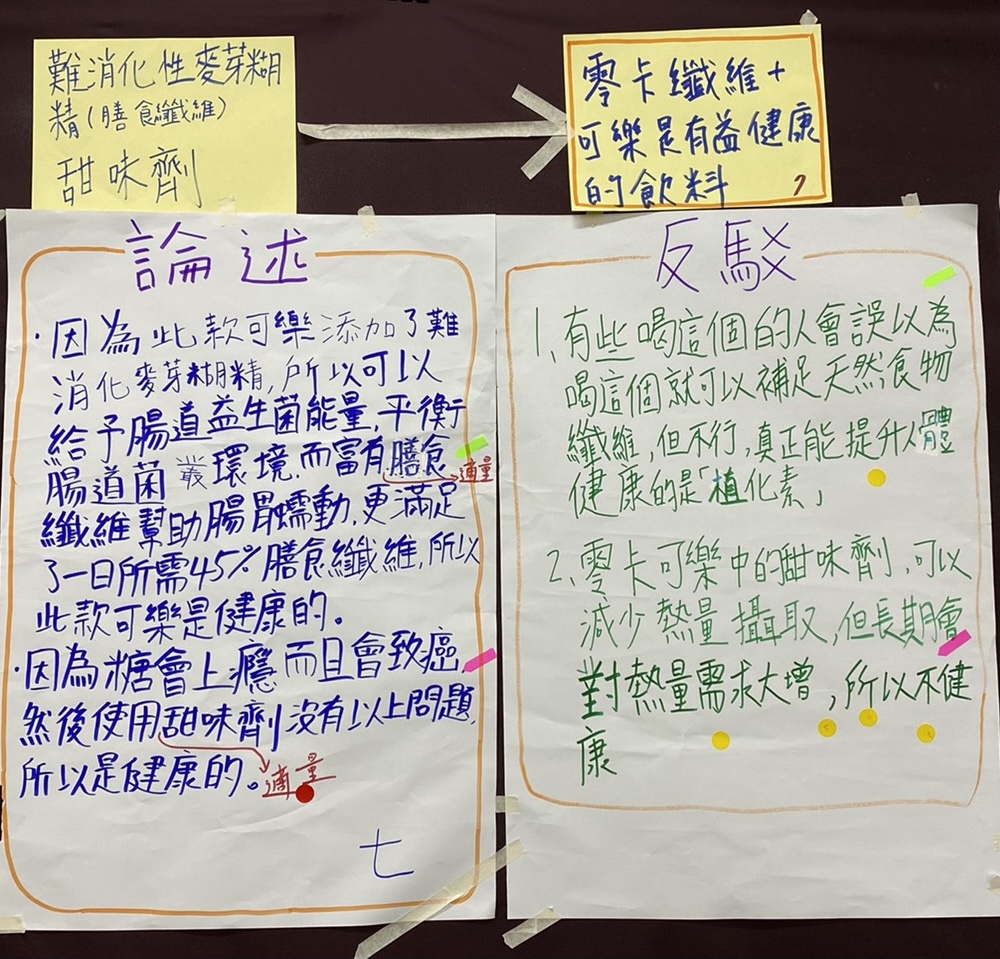 難消化性麥芽糊
精(膳食纖維)
甜味劑
零卡纖維+
可樂是有益健康
的飲料
7
論述
·因為此款可樂添加了難
消化麥芽糊精,所以可以
給予腸道益生菌能量,平衡
腸道菌叢環境.而富有膳食
適量
纖維幫助腸胃蠕動.更滿足
了一日所需45%膳食纖維,所以
此款可樂是健康的。
·因為糖會上癮而且會致癌,
然後使用甜味劑沒有以上問題,
所以是健康的。適量
七
反駁
1、有些喝這個的人會誤以為
喝這個就可以補足天然食物
纖維,但不行,真正能提升人體
健康的是「植化素」
2、零卡可樂中的甜味劑,可以
減少熱量攝取,但長期會
對熱量需求大增,所以不健
康